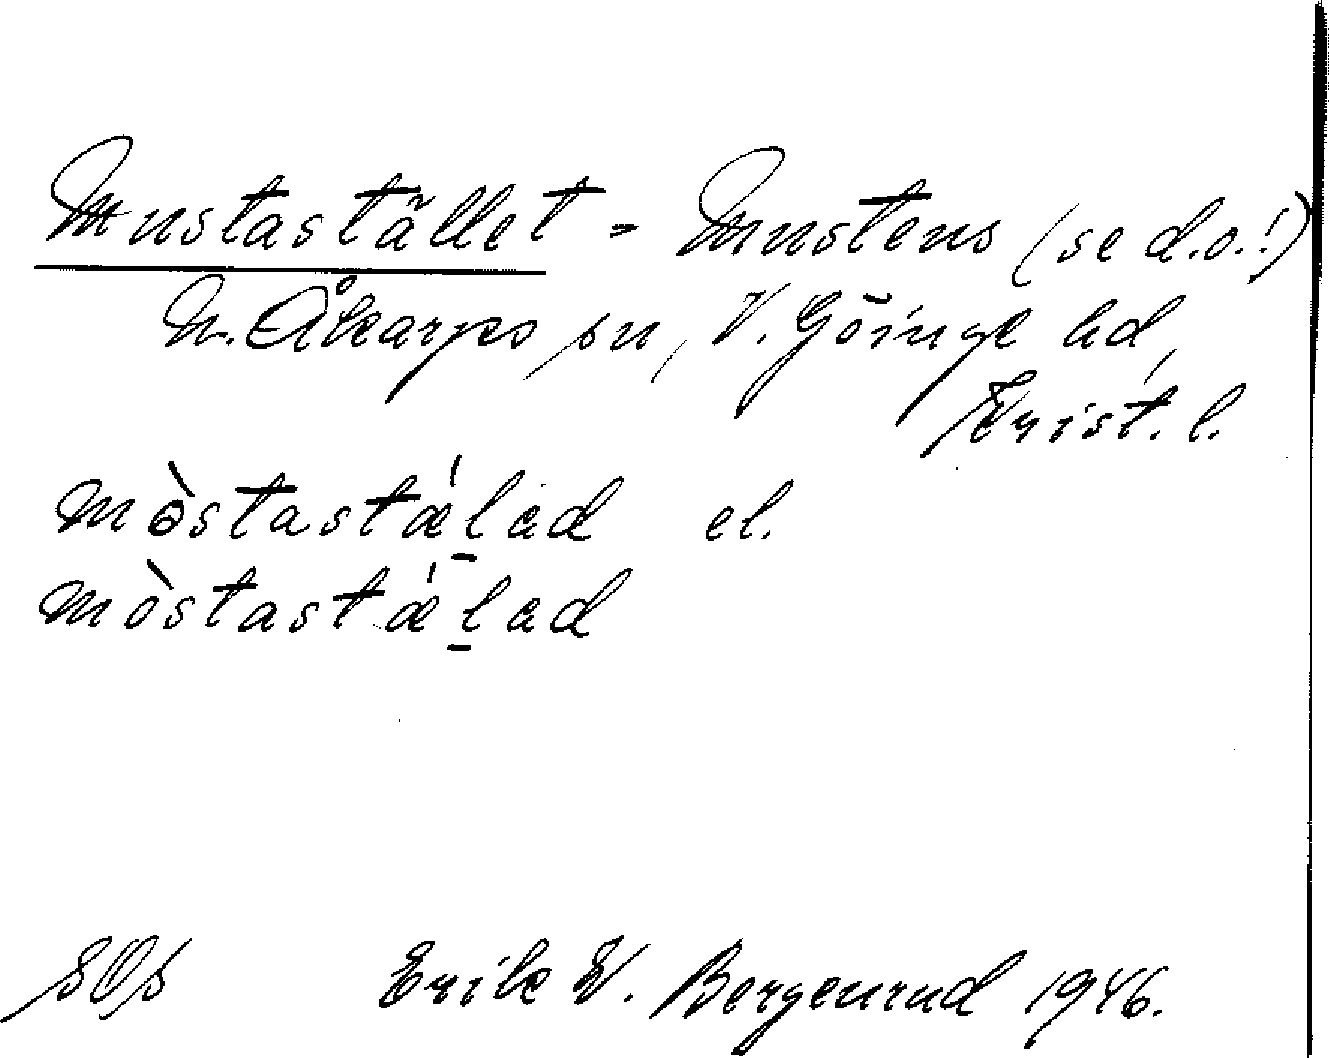 Mustastället = Mustens (se d.o.!)
N. Åkarps sn, V. Göinge hd,
Krist. l.
mòstastǽḻad el.
mòstastǽḻad
Erik W. Bergenrud 1946.